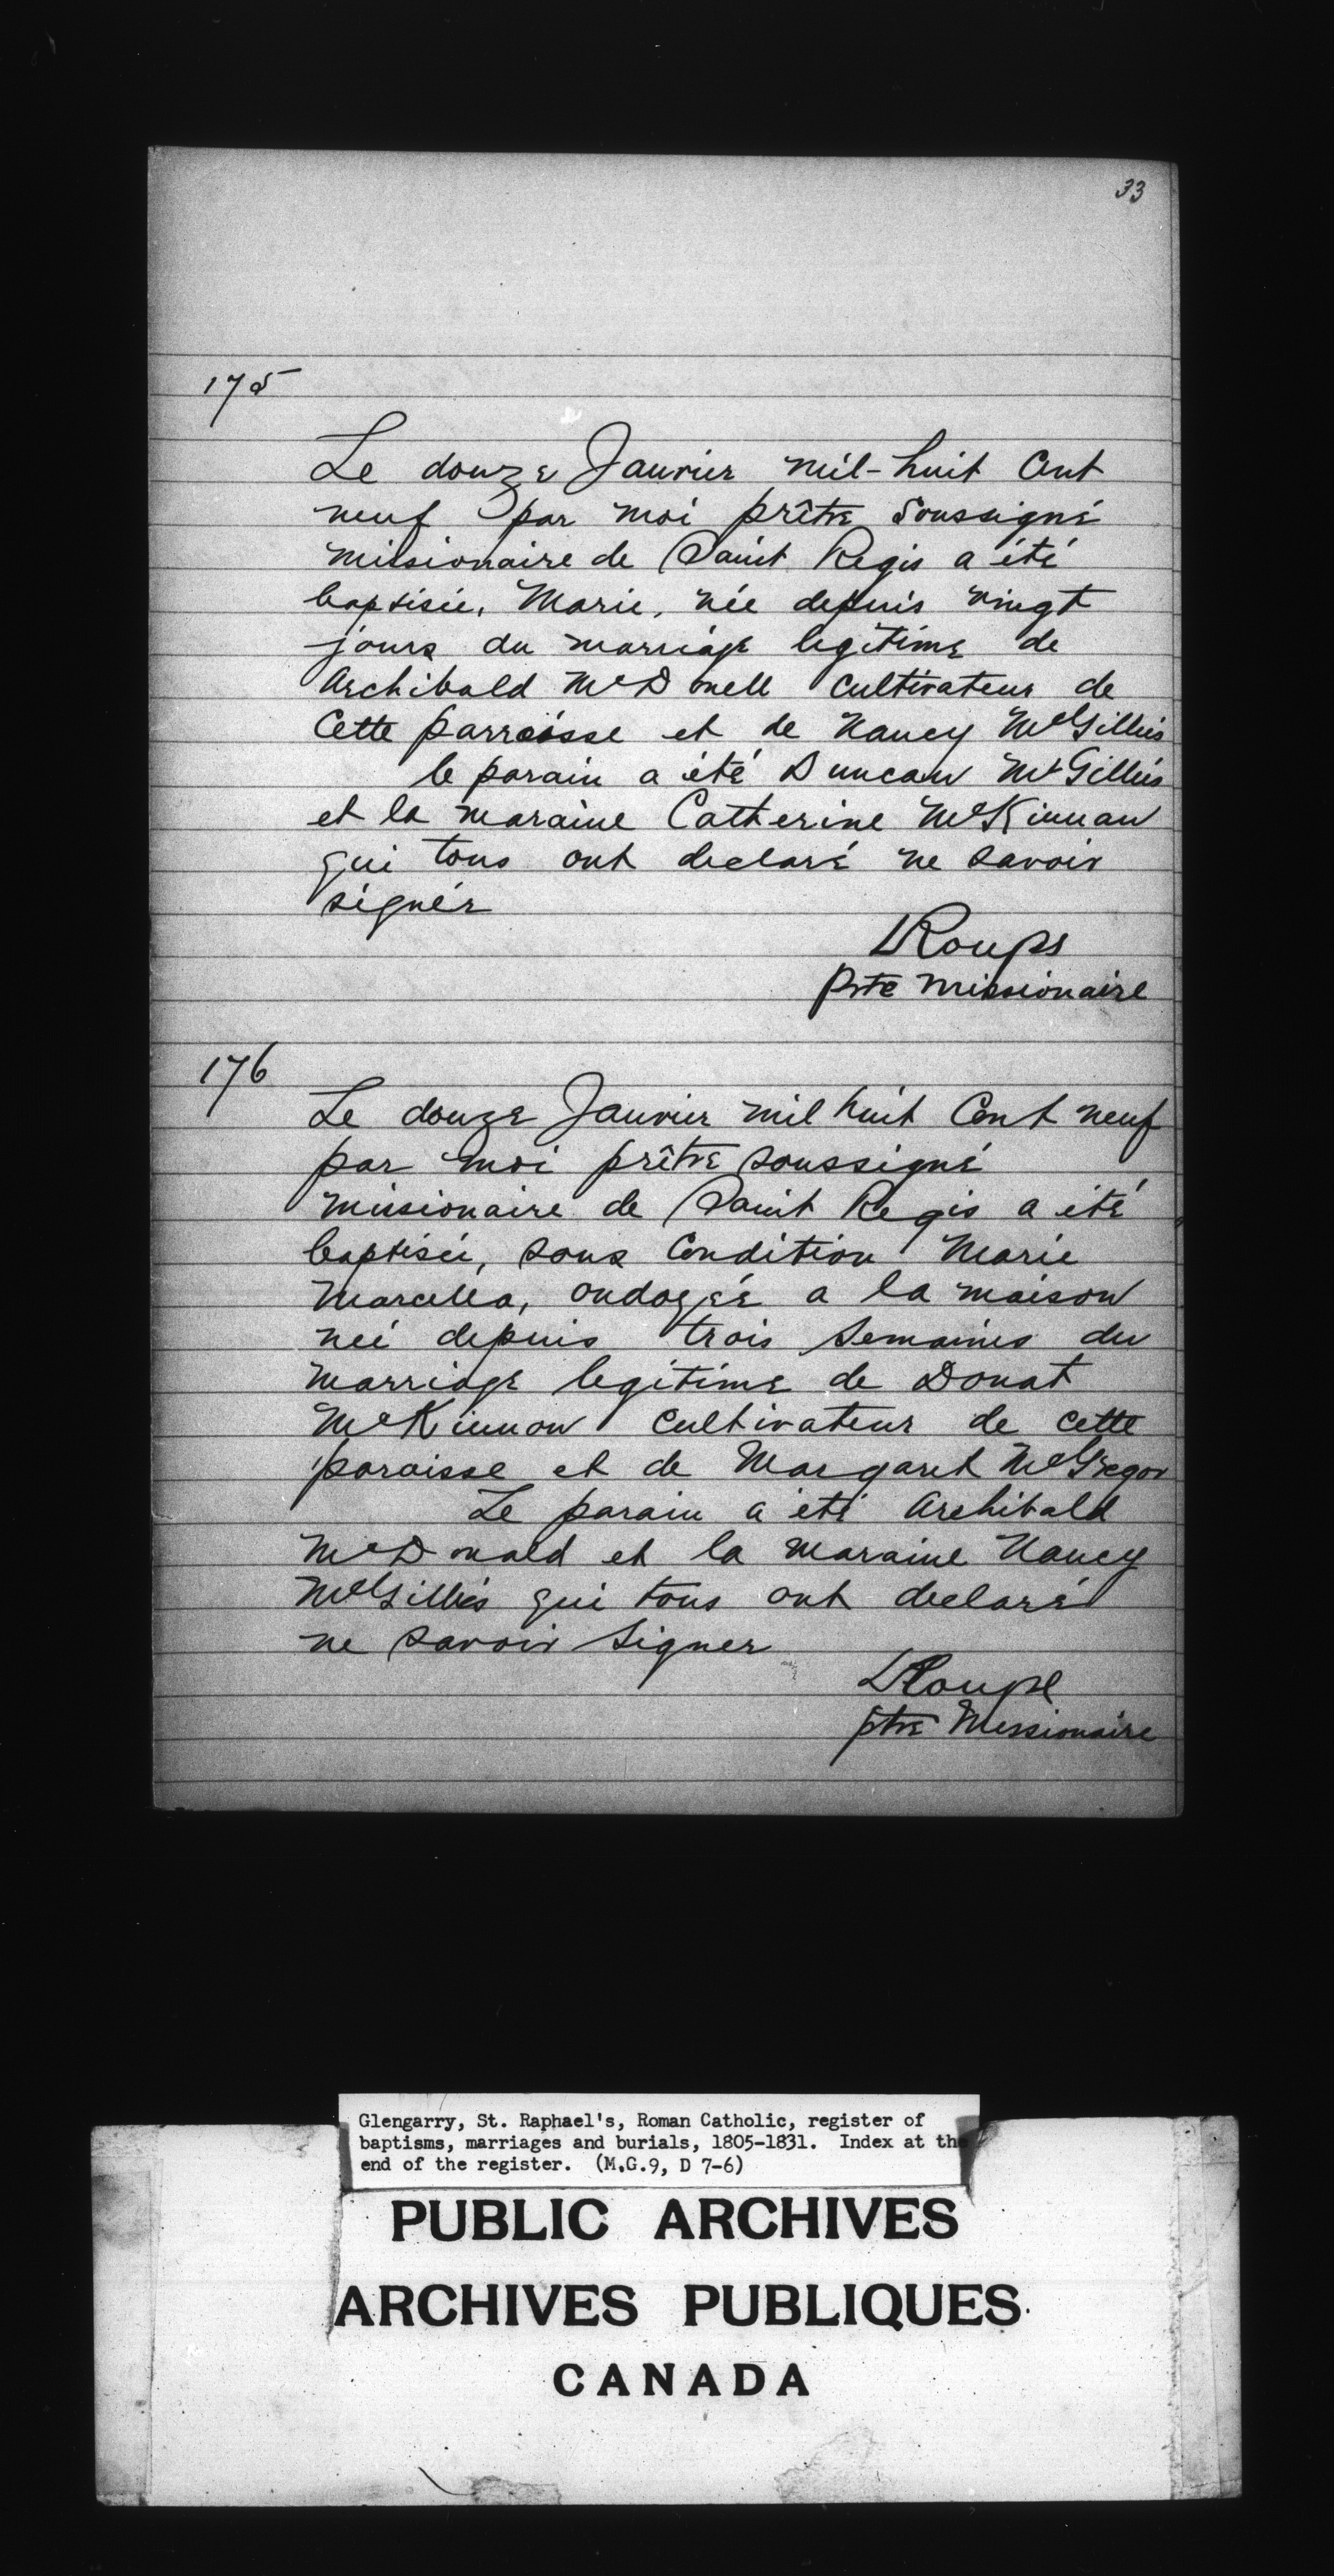 33
175
Le douze Janvier mil-huit Cent
neuf par moi prêtre Soussigné
missionaire de Saint Regis a été
baptisée, Marie, née depuis vingt
jours du marriage legitime de
Archibald McDonell Cultivateur de
Cette parroisse et de Nancy McGillies
le parain a été Duncan McGillies
et la maraine Catherine McKinnan
qui tous ont declaré ne savoir
signér
Roupe
Ptre missionaire
176
Le douze Janvier mil huit Cent neuf
par moi prêtre soussigné
missionaire de Saint Regis a été
baptisée, sous Condition Marie
Marcella, ondoyéé a la maison
née depuis trois Semaines du
Marriage legitime de Donat
McKinnon Cultivateur de cette
paroisse et de Margaret McGregor
Le parain a été Archibald
McDonald et la maraine Nancy
McGillies qui tous ont declaré
ne savoir Signer
Roupe
ptre Missionaire
Glengarry, St. Raphael's, Roman Catholic, register of
baptisms, marriages and burials, 1805-1831. Index at the
end of the register. (M.G.9, D 7-6)
PUBLIC ARCHIVES
ARCHIVES PUBLIQUES
CANADA